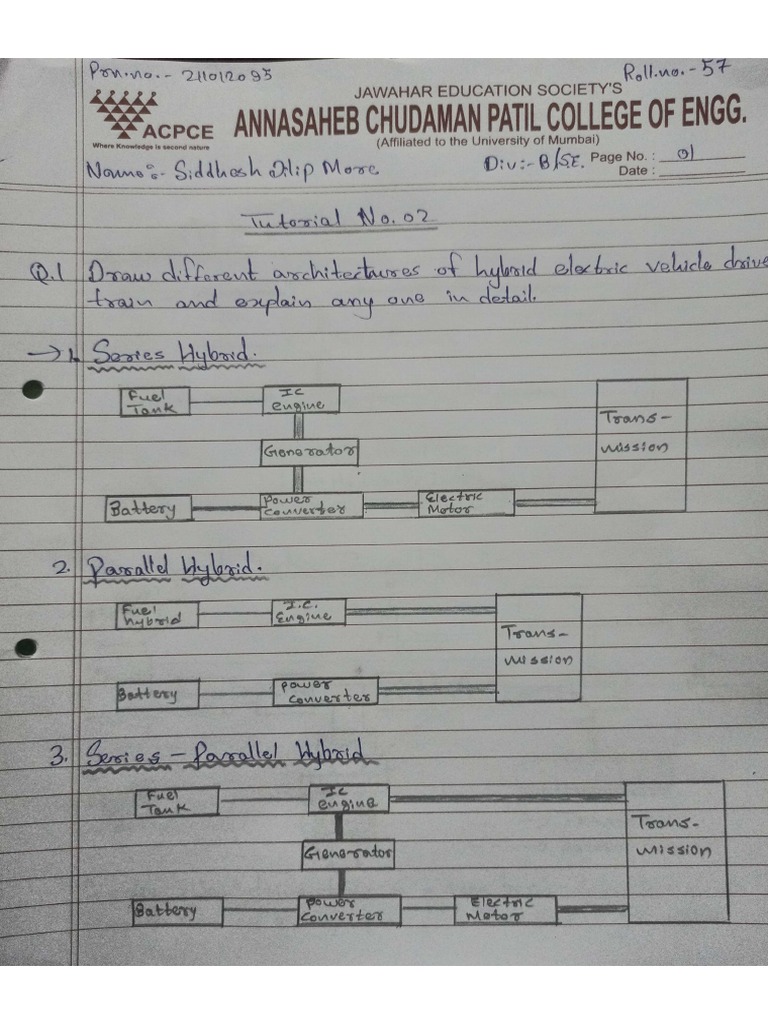 Prn.no. - 211012095
Roll.no. - 57
JAWAHAR EDUCATION SOCIETY'S
ANNASAHEB CHUDAMAN PATIL COLLEGE OF ENGG.
(Affiliated to the University of Mumbai)
ACPCE
Where Knowledge is second nature
Name:- Siddhesh Dilip More
Div:- B/S.E.
Page No. : 01
Date :
Tutorial No. 02
Q.1 Draw different architectures of hybrid electric vehicle drive
train and explain any one in detail.
→ 1. Series Hybrid.
Fuel Tank
IC engine
Generator
Trans-
mission
Battery
Power converter
Electric Motor
2. Parallel Hybrid.
Fuel hybrid
I.C. Engine
Trans-
mission
Battery
power converter
3. Series - Parallel Hybrid
Fuel Tank
IC engine
Generator
Trans-
mission
Battery
Power converter
Electric Motor